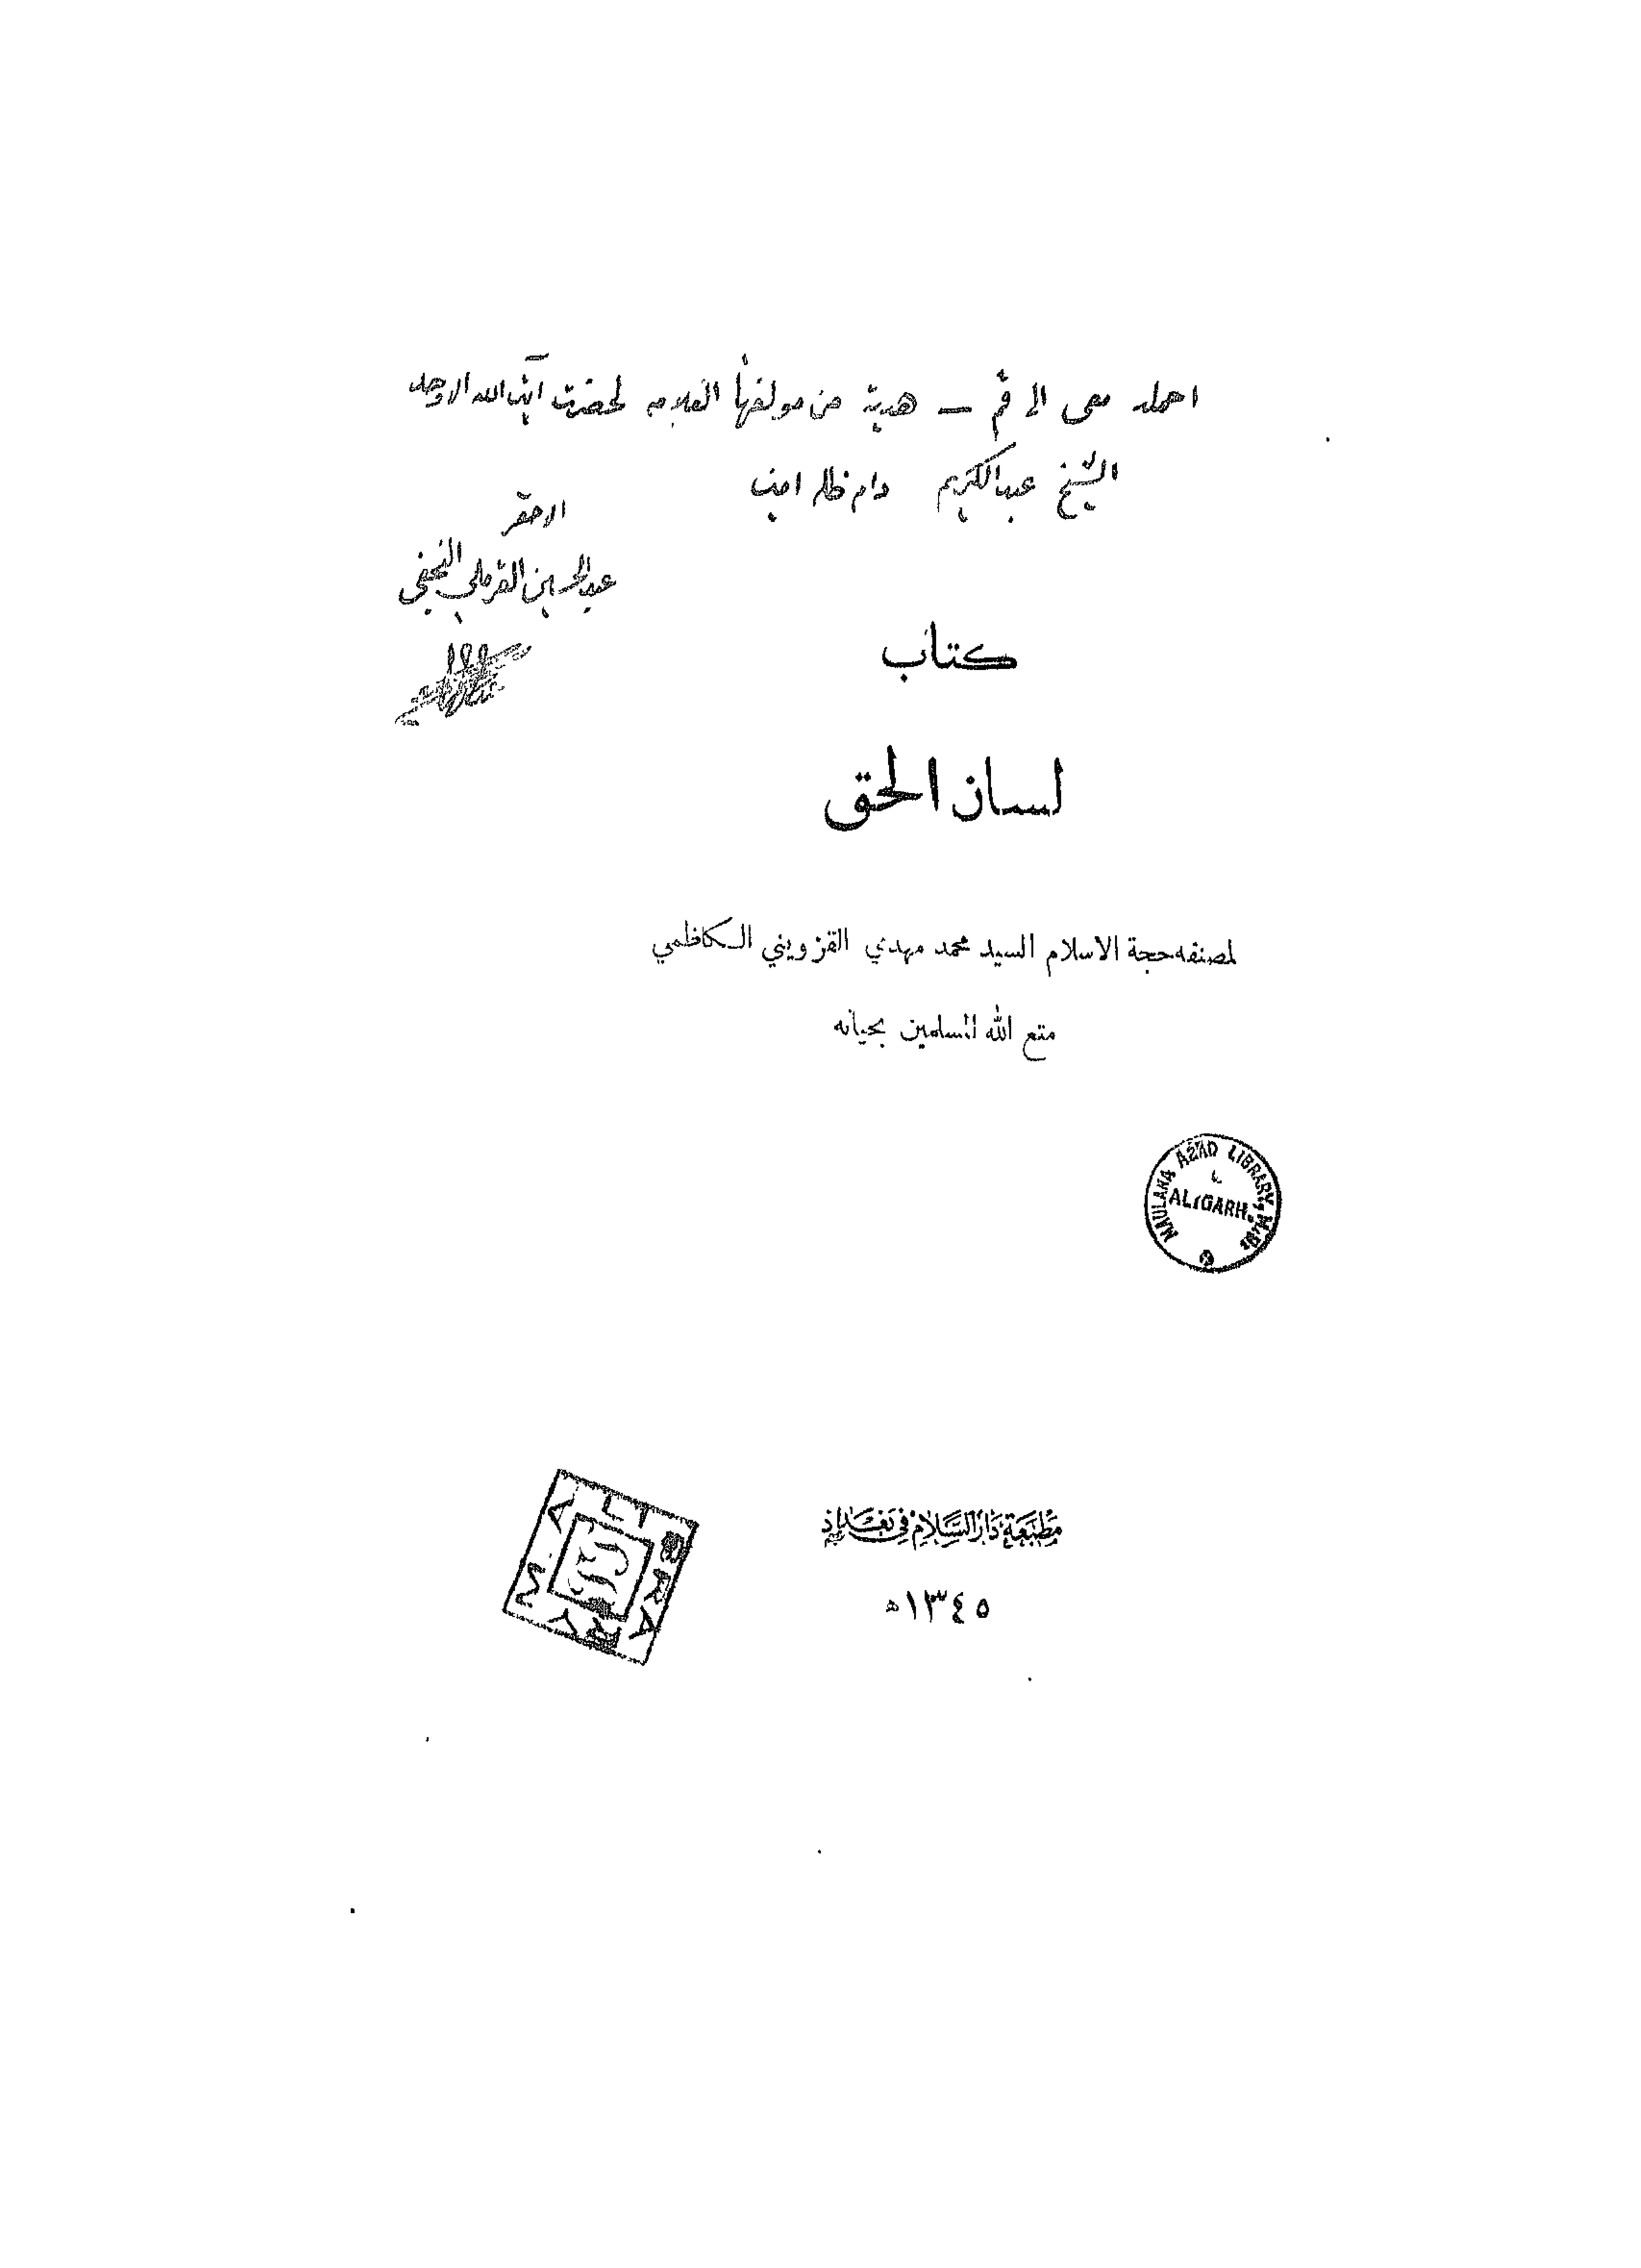 احمله معي الى قم — هدية من مولفها العلامه لحضرت آية الله الاوحد
الشيخ عبدالكريم دام ظله امين
الاحقر
عبدالحسين القرملي النجفي
كتاب
لسان الحق
لمصنفه حجة الاسلام السيد محمد مهدي القزويني الكاظمي
متع الله المسلمين بحياته
MAULANA AZAD LIBRARY,
ALIGARH.
مطبعة دار السلام في بغداد
١٣٤٥ه
M. A. LIBRARY